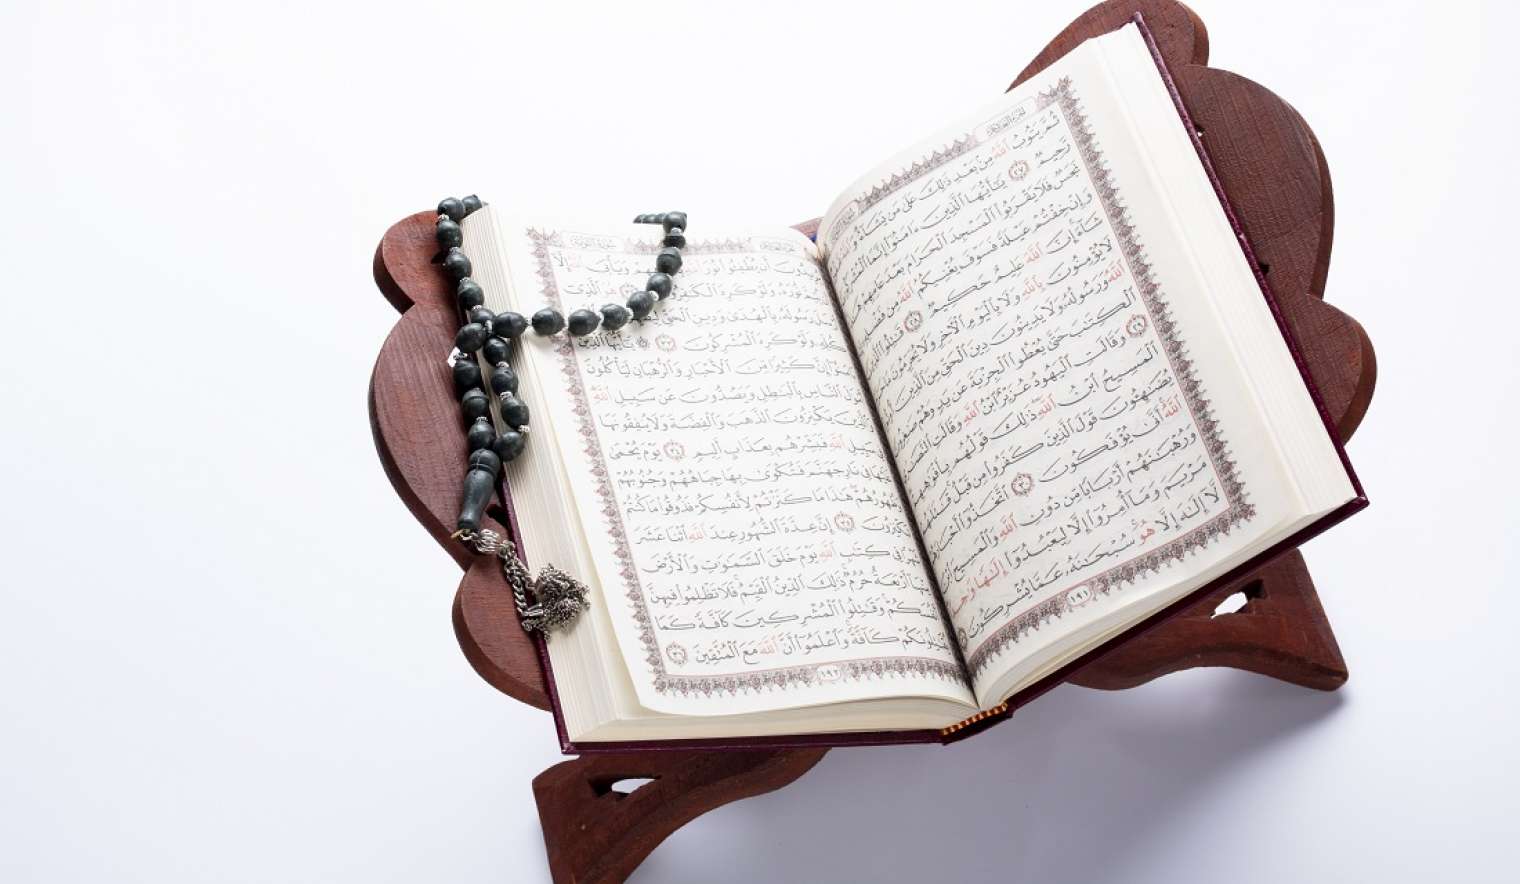 الجزء العاشر
ثُمَّ يَتُوبُ ٱللَّهُ مِنۢ بَعْدِ ذَٰلِكَ عَلَىٰ مَن يَشَآءُ وَٱللَّهُ
رَّحِيمٌ ٢٧ يَٰٓأَيُّهَا ٱلَّذِينَ ءَامَنُوٓا۟ إِنَّمَا ٱلْمُشْرِكُونَ
نَجَسٌ فَلَا يَقْرَبُوا۟ ٱلْمَسْجِدَ ٱلْحَرَامَ بَعْدَ عَامِهِمْ هَٰذَا
وَإِنْ خِفْتُمْ عَيْلَةً فَسَوْفَ يُغْنِيكُمُ ٱللَّهُ مِن فَضْلِهِۦٓ
شَآءَ إِنَّ ٱللَّهَ عَلِيمٌ حَكِيمٌ ٢٨ قَٰتِلُوا۟ ٱلَّذِينَ
لَا يُؤْمِنُونَ بِٱللَّهِ وَلَا بِٱلْيَوْمِ ٱلْءَاخِرِ وَلَا يُحَرِّمُونَ مَا حَرَّمَ
ٱللَّهُ وَرَسُولُهُۥ وَلَا يَدِينُونَ دِينَ ٱلْحَقِّ مِنَ ٱلَّذِينَ أُوتُوا۟
ٱلْكِتَٰبَ حَتَّىٰ يُعْطُوا۟ ٱلْجِزْيَةَ عَن يَدٍ وَهُمْ صَٰغِرُونَ
٢٩ وَقَالَتِ ٱلْيَهُودُ عُزَيْرٌ ٱبْنُ ٱللَّهِ وَقَالَتِ ٱلنَّصَٰرَى
ٱلْمَسِيحُ ٱبْنُ ٱللَّهِ ذَٰلِكَ قَوْلُهُم بِأَفْوَٰهِهِمْ
يُضَٰهِـُٔونَ قَوْلَ ٱلَّذِينَ كَفَرُوا۟ مِن قَبْلُ قَٰتَلَهُمُ
ٱللَّهُ أَنَّىٰ يُؤْفَكُونَ ٣٠ ٱتَّخَذُوٓا۟ أَحْبَارَهُمْ
وَرُهْبَٰنَهُمْ أَرْبَابًا مِّن دُونِ ٱللَّهِ وَٱلْمَسِيحَ ٱبْنَ
مَرْيَمَ وَمَآ أُمِرُوٓا۟ إِلَّا لِيَعْبُدُوٓا۟ إِلَٰهًا وَٰحِدًا
لَّآ إِلَٰهَ إِلَّا هُوَ سُبْحَٰنَهُۥ عَمَّا يُشْرِكُونَ
١٩١
سورة التوبة
يُرِيدُونَ أَن يُطْفِـُٔوا۟ نُورَ ٱللَّهِ وَيَأْبَى ٱللَّهُ إِلَّآ
يُتِمَّ نُورَهُۥ وَلَوْ كَرِهَ ٱلْكَٰفِرُونَ هُوَ ٱلَّذِىٓ
رَسُولَهُۥ بِٱلْهُدَىٰ وَدِينِ ٱلْحَقِّ
كُلِّهِۦ وَلَوْ كَرِهَ ٱلْمُشْرِكُونَ ٣٣ يَٰٓأَيُّهَا ٱلَّذِينَ
إِنَّ كَثِيرًا مِّنَ ٱلْأَحْبَارِ وَٱلرُّهْبَانِ لَيَأْكُلُونَ
أَمْوَٰلَ ٱلنَّاسِ بِٱلْبَٰطِلِ وَيَصُدُّونَ عَن سَبِيلِ ٱللَّهِ
وَٱلَّذِينَ يَكْنِزُونَ ٱلذَّهَبَ وَٱلْفِضَّةَ وَلَا يُنفِقُونَهَا
سَبِيلِ ٱللَّهِ فَبَشِّرْهُم بِعَذَابٍ أَلِيمٍ ٣٤ يَوْمَ يُحْمَىٰ
عَلَيْهَا فِى نَارِ جَهَنَّمَ فَتُكْوَىٰ بِهَا جِبَاهُهُمْ وَجُنُوبُهُمْ
وَظُهُورُهُمْ هَٰذَا مَا كَنَزْتُمْ لِأَنفُسِكُمْ فَذُوقُوا۟ مَا كُنتُمْ
تَكْنِزُونَ ٣٥ إِنَّ عِدَّةَ ٱلشُّهُورِ عِندَ ٱللَّهِ ٱثْنَا عَشَرَ
شَهْرًا فِى كِتَٰبِ ٱللَّهِ يَوْمَ خَلَقَ ٱلسَّمَٰوَٰتِ وَٱلْأَرْضَ
مِنْهَآ أَرْبَعَةٌ حُرُمٌ ذَٰلِكَ ٱلدِّينُ ٱلْقَيِّمُ فَلَا تَظْلِمُوا۟ فِيهِنَّ
أَنفُسَكُمْ وَقَٰتِلُوا۟ ٱلْمُشْرِكِينَ كَآفَّةً كَمَا
يُقَٰتِلُونَكُمْ كَآفَّةً وَٱعْلَمُوٓا۟ أَنَّ ٱللَّهَ مَعَ ٱلْمُتَّقِينَ ٣٦
١٩٢